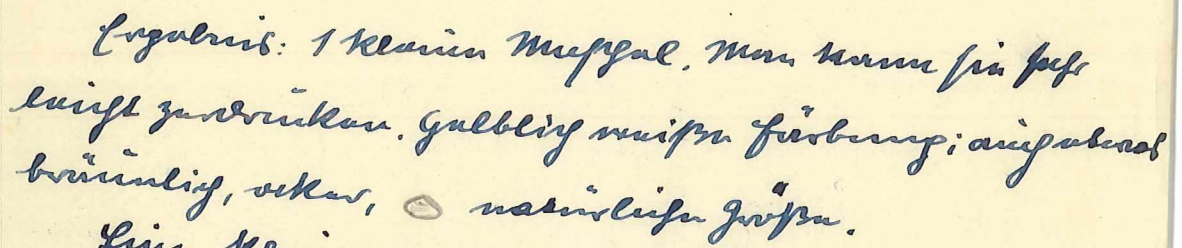 Ergebnis: 1 kleine Muschel. Man kann sie sehr
leicht zerdrücken. Gelblich weiße Färbung; auch etwas
bräunlich, ocker, natürliche Größe.
Eine